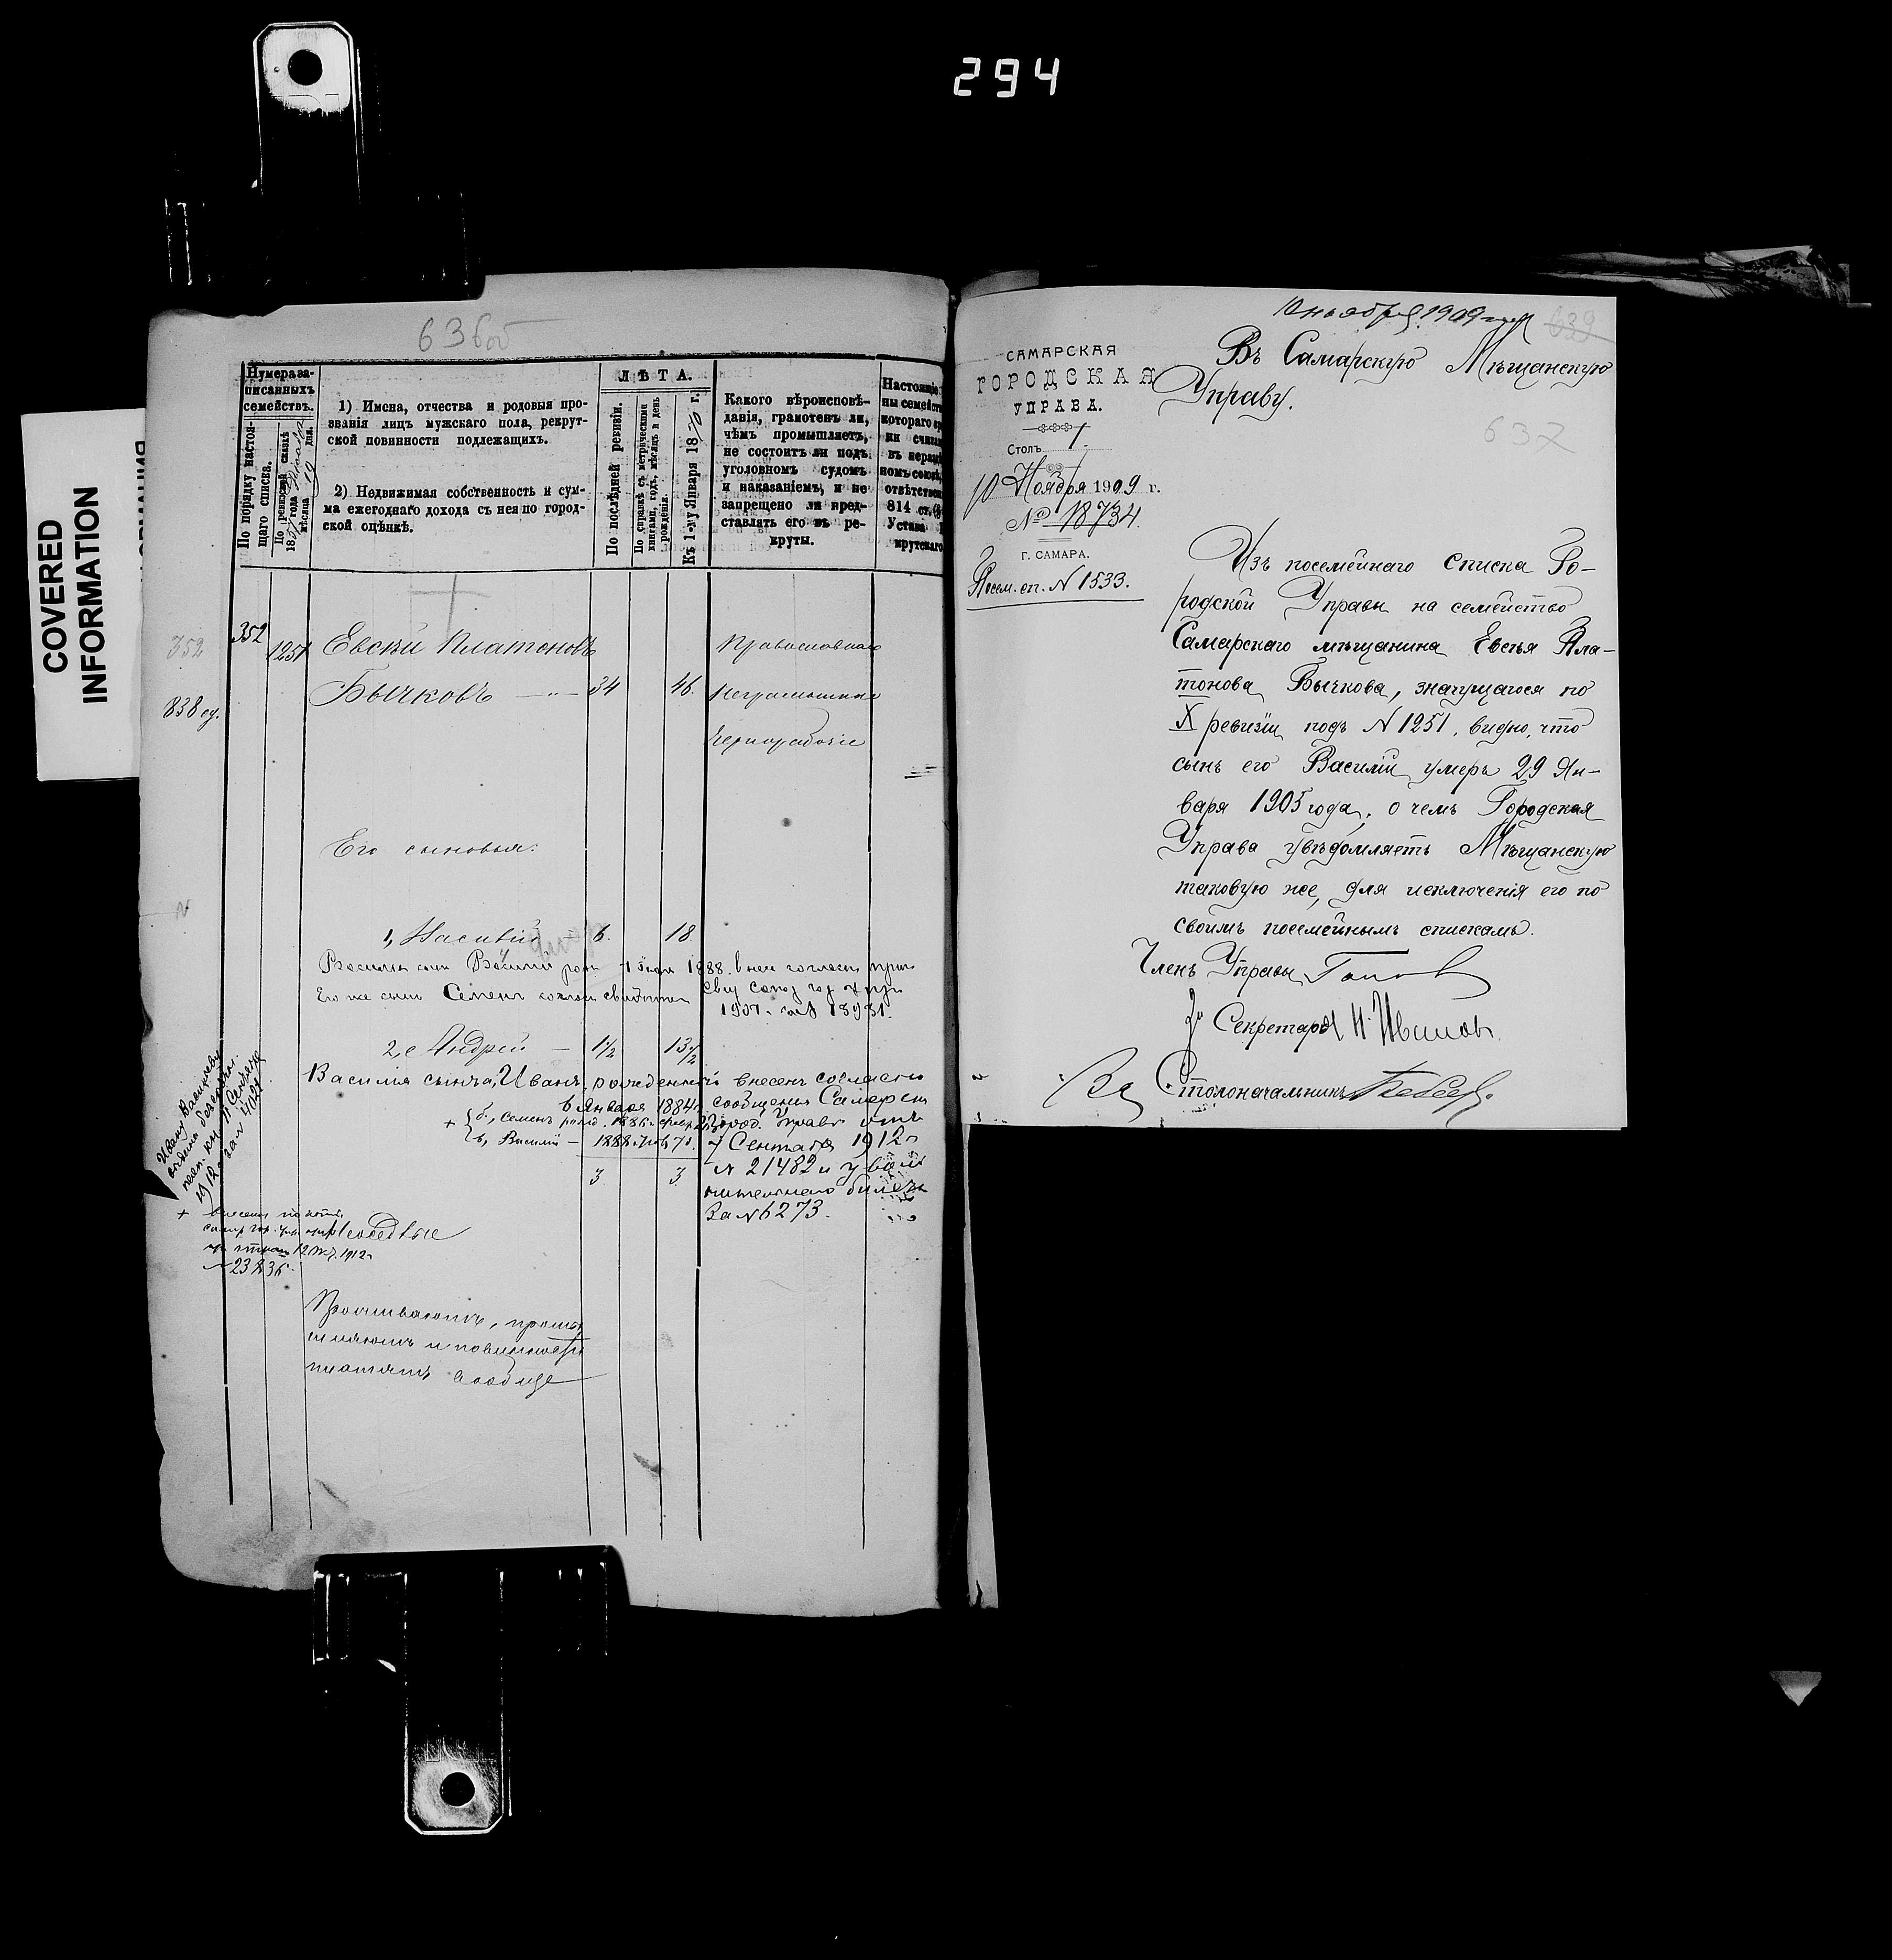 294
COVERED
INFORMATION
63 об
Нумера за-
писанныхъ
семействъ.
По порядку настоя-
щаго списка.
По ревизской сказкѣ
18 года
мѣсяца дня.
1) Имена, отчества и родовыя про-
званія лицъ мужскаго пола, рекрут-
ской повинности подлежащихъ.
2) Недвижимая собственность и сум-
ма ежегоднаго дохода съ нея по город-
ской оцѣнкѣ.
ЛѢТА.
По послѣдней ревизіи.
По справкѣ съ метрическими
книгами, годъ, мѣсяцъ и день
рожденія.
Къ 1-му Января 1870 г.
Какого вѣроисповѣ-
данія, грамотенъ ли,
чѣмъ промышляетъ,
не состоитъ ли подъ
уголовномъ судомъ
и наказаніемъ, и не
запрещено ли пред-
ставлять его въ ре-
круты.
Настояще
ны семейст
котораго
ни счита
въ нераз
номъ союз
отвѣтствен
814 ст.
Устава
крутскаго
352
352
1251
Евсѣй Платоновъ
Православнаго
838 су.
Бычковъ — " — 34 46.
Неграмотный
Чернорабочіе
Его сыновья:
1, Василій 6. 18
умеръ
Васильи сынъ Василій рожд 1 Іюля 1888. внесенъ согласно
Его же сынъ Семенъ согласно
1907. за № 13931.
2,е Андрей — 1½ 13½
Василія сынъ а, Иванъ, рожденный внесенъ согласно
6 Января 1884 г. сообщенія Самарск
+ б, Семенъ рожд. 1886 г. февр. Город. Управы отъ
в, Василій — 1888 7 Сентября 1912 г
3 3 № 21482 и уволь
нительнаго билета
За № 6273.
Ивану Васильеву
1912 г за № 4027
+ внесены
12 1912 г
№ 23836.
Осѣдлые
Проживаютъ, промы
шляютъ и повинности
платятъ вообще
10 ноября 1909 года
639
САМАРСКАЯ
ГОРОДСКАЯ
УПРАВА.
Столъ 1.
10 Ноября 1909 г.
№ 18734.
Г. САМАРА.
Посем. сп. № 1533.
Въ Самарскую Мѣщанскую
Управу.
637
Изъ посемейнаго списка Го-
родской Управы на семейство
Самарскаго мѣщанина Евсѣя Пла-
тонова Бычкова, значущагося по
X ревизіи подъ № 1251, видно, что
сынъ его Василій умеръ 29 Ян-
варя 1905 года, о чемъ Городская
Управа увѣдомляетъ Мѣщанскую
таковую же, для исключенія его по
своимъ посемейнымъ спискамъ.
Членъ Управы
За Секретаря Н. Ивановъ
За Столоначальника